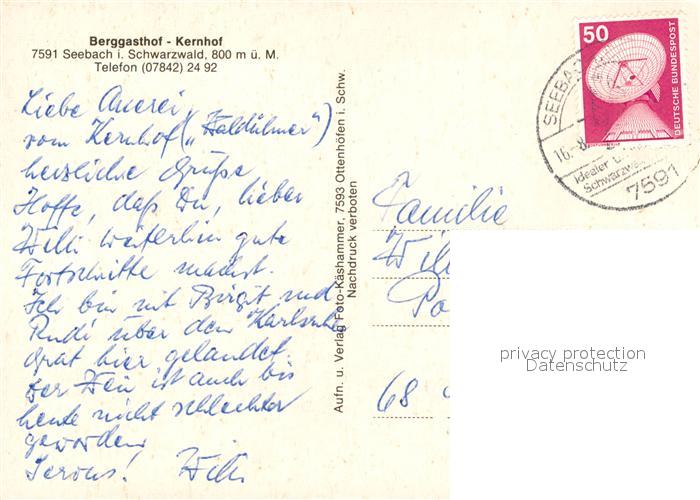 Berggasthof - Kernhof
7591 Seebach i. Schwarzwald, 800 m ü. M.
Telefon (07842) 24 92
Liebe Annerei,
vom Kernhof („Waldulmer")
herzliche Grüße
Hoffe, daß Du, lieber
Willi weiterhin gute
Fortschritte machst.
Ich bin mit Birgit und
Rudi über den Karlsruher
Grat hier gelandet.
Der Wein ist auch bis
heute nicht schlechter
geworden.
Servus! Willi
Aufn. u. Verlag Foto-Käshammer, 7593 Ottenhöfen i. Schw.
Nachdruck verboten
50
DEUTSCHE BUNDESPOST
SEEBA
16.-8.
Idealer
Schwarzwa
7591
Familie
Wil
Po
68
privacy protection
Datenschutz